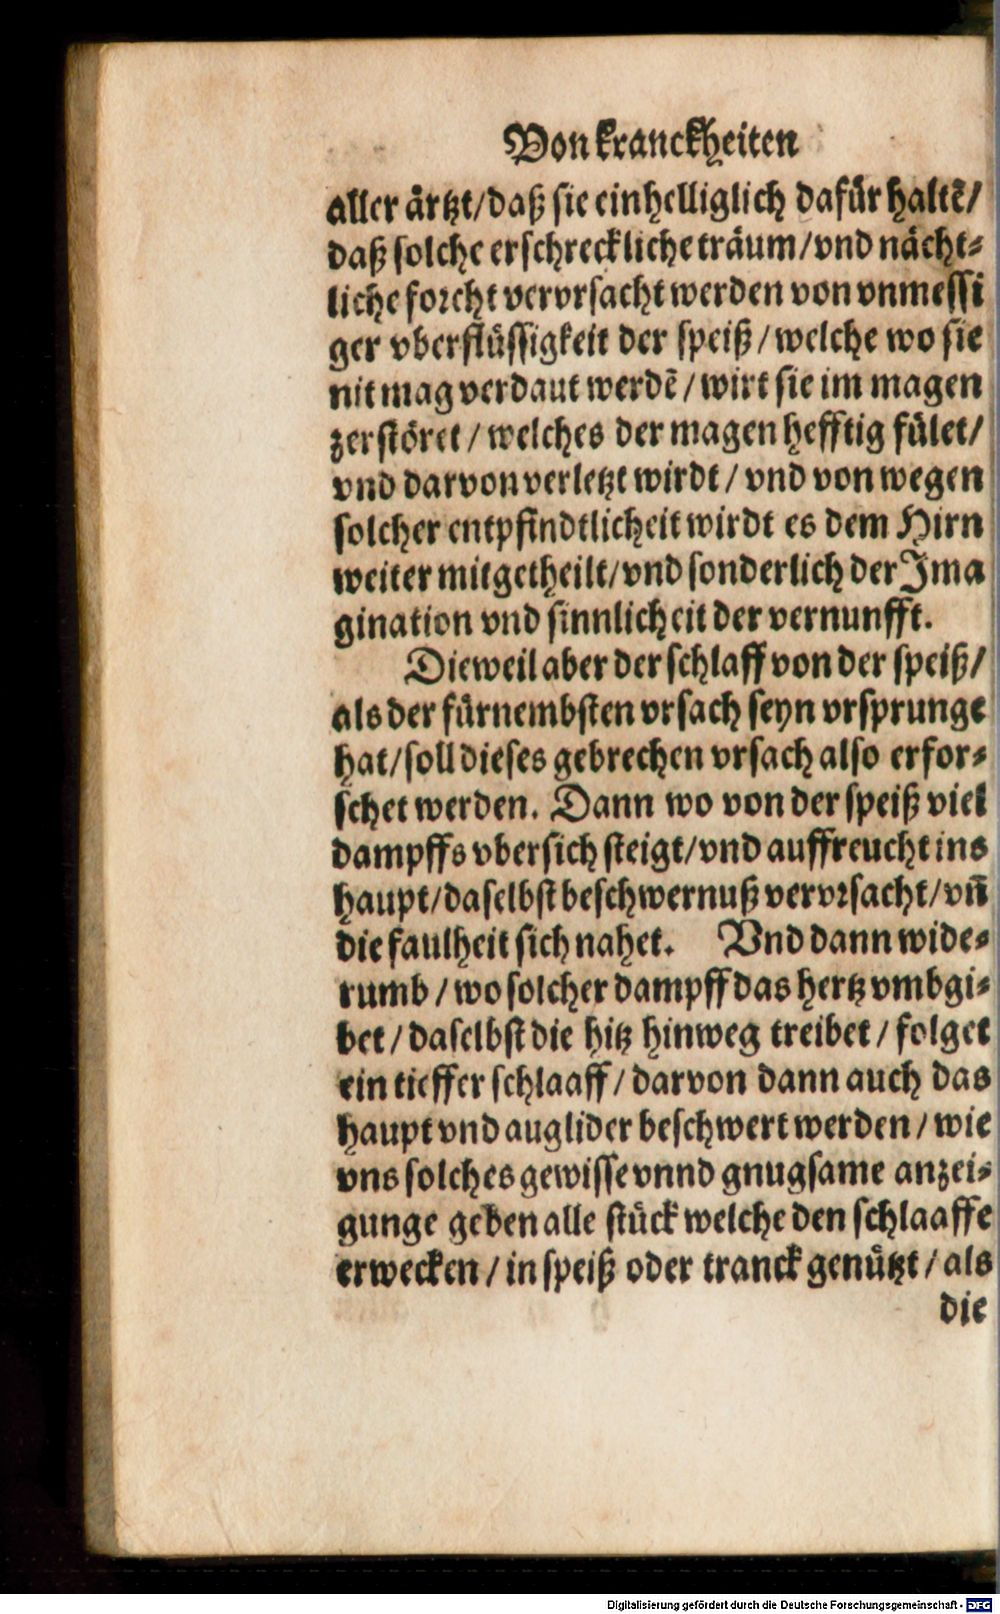 Von kranckheiten
aller ärtzt/daß sie einhelliglich dafür haltẽ/
daß solche erschreckliche träum/vnd nächt-
liche forcht vervrsacht werden von vnmessi
ger vberflüssigkeit der speiß/welche wo sie
nit mag verdaut werdẽ/wirt sie im magen
zerstöret/welches der magen hefftig fület/
vnd darvon verletzt wirdt/vnd von wegen
solcher entpfindtlicheit wirdt es dem Hirn
weiter mitgetheilt/vnd sonderlich der Ima
gination vnd sinnlicheit der vernunfft.
Dieweil aber der schlaff von der speiß/
als der fürnembsten vrsach seyn vrsprunge
hat/soll dieses gebrechen vrsach also erfor-
schet werden. Dann wo von der speiß viel
dampffs vbersich steigt/vnd auffreucht ins
haupt/daselbst beschwernuß vervrsacht/vñ
die faulheit sich nahet. Vnd dann wide-
rumb/wo solcher dampff das hertz vmbgi-
bet/daselbst die hitz hinweg treibet/folget
ein tieffer schlaaff/darvon dann auch das
haupt vnd auglider beschwert werden/wie
vns solches gewisse vnnd gnugsame anzei-
gunge geben alle stück welche den schlaaffe
erwecken/in speiß oder tranck genützt/als
die
Digitalisierung gefördert durch die Deutsche Forschungsgemeinschaft - DFG